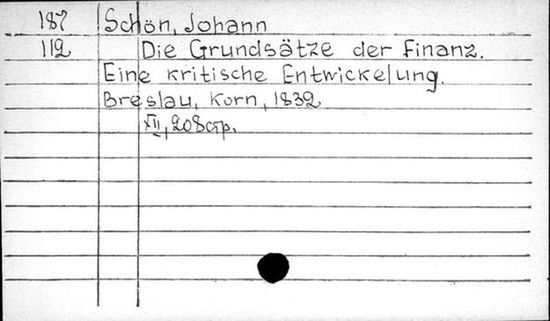 187 Schön, Johann
112 Die Grundsätze der Finanz.
Eine kritische Entwickelung.
Breslau, Korn, 1832
XII, 208 стр.